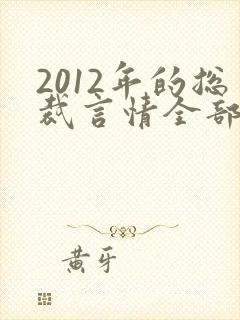 2012年的总
裁言情全部
黄牙